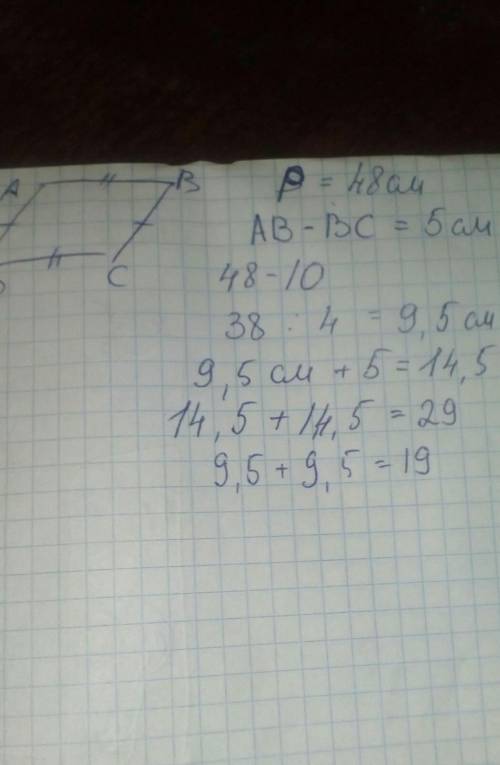 A B
C
P = 48 см
AB - BC = 5 см
48 - 10
38 : 4 = 9,5 см
9,5 см + 5 = 14,5
14,5 + 14,5 = 29
9,5 + 9,5 = 19